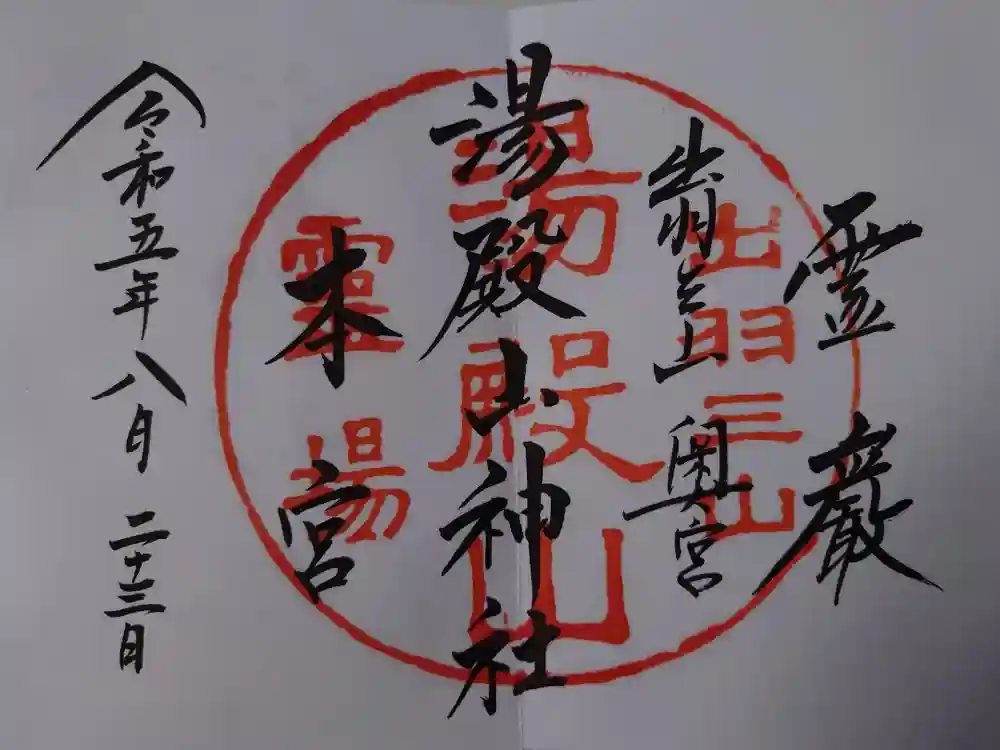 霊巌
出羽三山 奥宮
湯殿山神社
本宮
令和五年八月二十三日
出羽三山
湯殿山
霊場